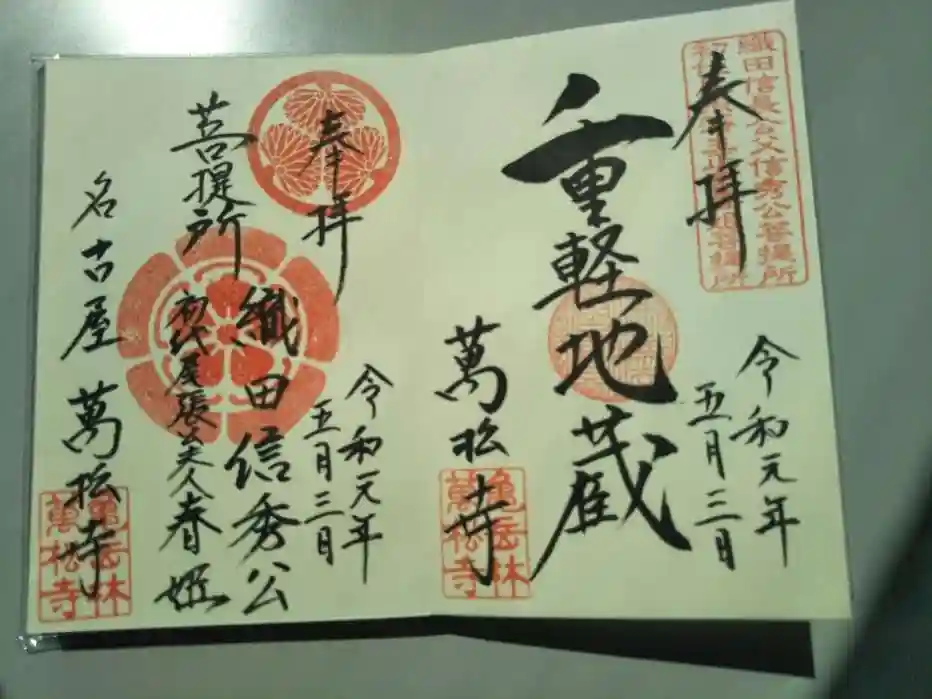 織田信長公父信秀公菩提所
奉拝
令和元年
五月三日
重軽地蔵
萬松寺
亀岳林
萬松寺
奉拝
令和元年
五月三日
菩提所
織田信秀公
初代尾張公夫人春姫
名古屋 萬松寺
亀岳林
萬松寺